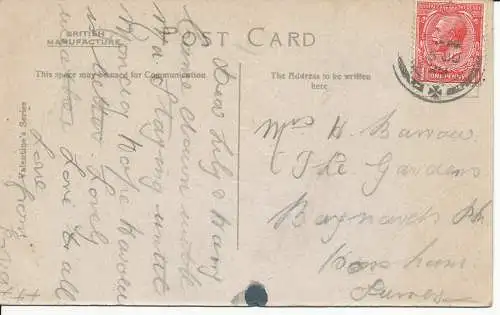 POST CARD
BRITISH
MANUFACTURE
This space may be used for Communication.
The Address to be written
here.
Valentine's Series
ONE PENNY
Dear Lily & Harry
Come down
Ma staying until
Monday hope Harold
is better. Lovely
weather Love to all
Love
from
Mrs H. Barrow
The Gardens
Baynards Pk
Horsham
Surrey